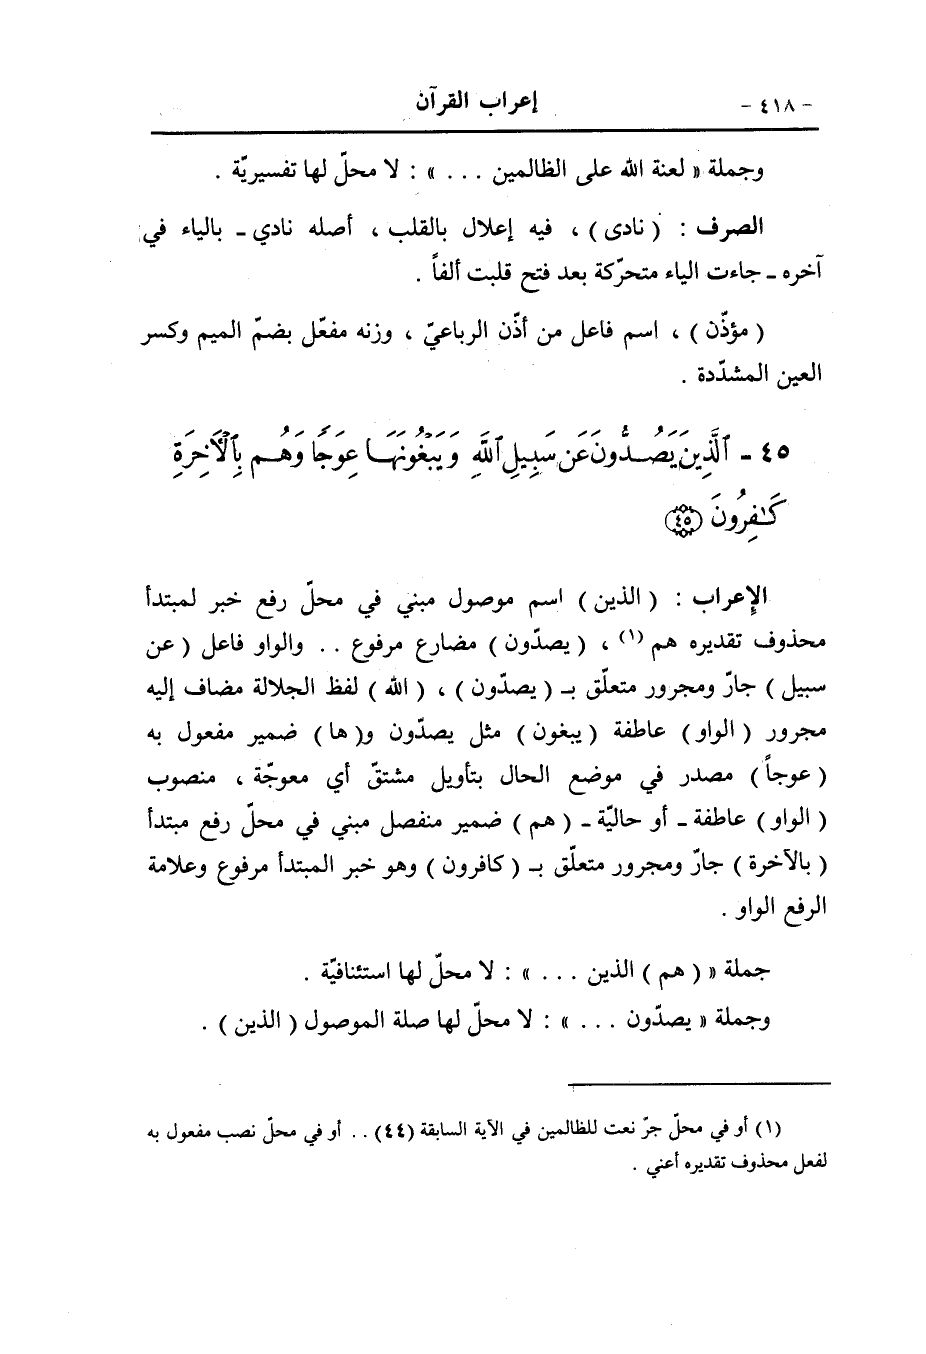 - ٤١٨ - إعراب القرآن
وجملة « لعنة الله على الظالمين . . . » : لا محلّ لها تفسيريّة .
الصرف : ( نادى ) ، فيه إعلال بالقلب ، أصله نادي - بالياء في
آخره - جاءت الياء متحرّكة بعد فتح قلبت ألفاً .
( مؤذّن ) ، اسم فاعل من أذّن الرباعيّ ، وزنه مفعّل بضمّ الميم وكسر
العين المشدّدة .
٤٥ - ٱلَّذِينَ يَصُدُّونَ عَن سَبِيلِ ٱللَّهِ وَيَبْغُونَهَا عِوَجًا وَهُم بِٱلْأَخِرَةِ
كَـٰفِرُونَ ﴿٤٥﴾
الإعراب : ( الذين ) اسم موصول مبني في محلّ رفع خبر لمبتدأ
محذوف تقديره هم (١) ، ( يصدّون ) مضارع مرفوع . . والواو فاعل ( عن
سبيل ) جارّ ومجرور متعلّق بـ ( يصدّون ) ، ( الله ) لفظ الجلالة مضاف إليه
مجرور ( الواو ) عاطفة ( يبغون ) مثل يصدّون و( ها ) ضمير مفعول به
( عوجاً ) مصدر في موضع الحال بتأويل مشتقّ أي معوجّة ، منصوب
( الواو ) عاطفة - أو حاليّة - ( هم ) ضمير منفصل مبني في محلّ رفع مبتدأ
( بالآخرة ) جارّ ومجرور متعلّق بـ ( كافرون ) وهو خبر المبتدأ مرفوع وعلامة
الرفع الواو .
جملة « ( هم ) الذين . . . » : لا محلّ لها استئنافيّة .
وجملة « يصدّون . . . » : لا محلّ لها صلة الموصول ( الذين ) .
(١) أو في محلّ جرّ نعت للظالمين في الآية السابقة (٤٤) . . أو في محلّ نصب مفعول به
لفعل محذوف تقديره أعني .